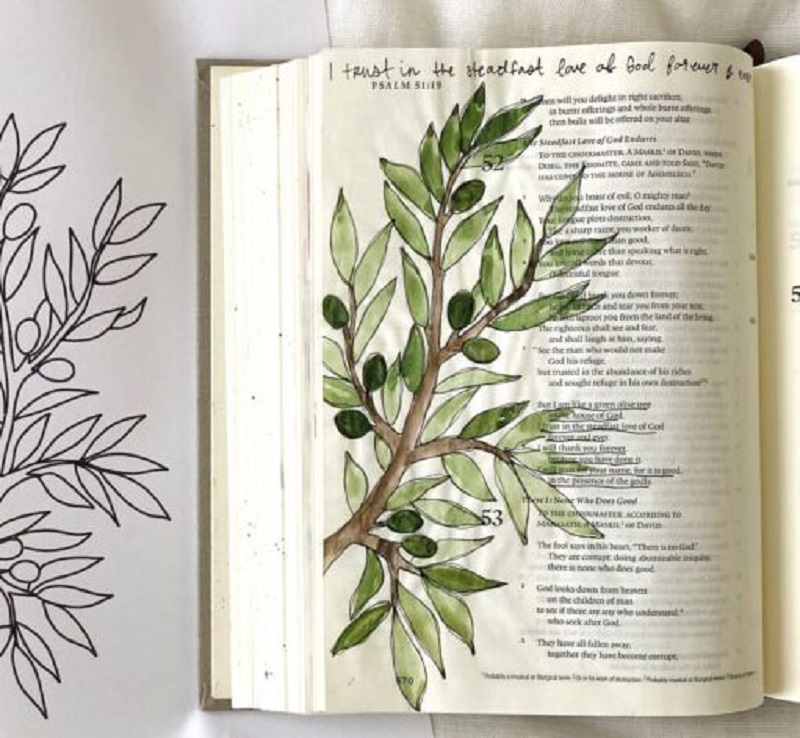 I trust in the steadfast love of God forever &
PSALM 51:19
will you delight in right sacrifices,
in burnt offerings and whole burnt offerings
then bulls will be offered on your altar
Steadfast Love of God Endures
52
TO THE CHOIRMASTER. A MASKIL OF DAVID, WHEN
DOEG, THE EDOMITE, CAME AND TOLD SAUL, "DAVID
HAS COME TO THE HOUSE OF AHIMELECH."
Why boast of evil, O mighty man?
love of God endures all the day
tongue plots destruction,
a sharp razor, you worker of deceit.
than good,
than speaking what is right.
words that devour,
deceitful tongue.
you down forever;
and tear you from your tent;
uproot you from the land of the living.
The righteous shall see and fear,
and shall laugh at him, saying,
"See the man who would not make
God his refuge,
but trusted in the abundance of his riches
and sought refuge in his own destruction!"
But I am like a green olive tree
house of God.
in the steadfast love of God
forever and ever.
will thank you forever,
you have done it.
your name, for it is good,
in the presence of the godly.
There Is None Who Does Good
53
TO THE CHOIRMASTER: ACCORDING TO
A MASKIL OF DAVID.
The fool says in his heart, "There is no God."
They are corrupt, doing abominable iniquity;
there is none who does good.
God looks down from heaven
on the children of man
to see if there are any who understand,
who seek after God.
They have all fallen away;
together they have become corrupt;
470
5